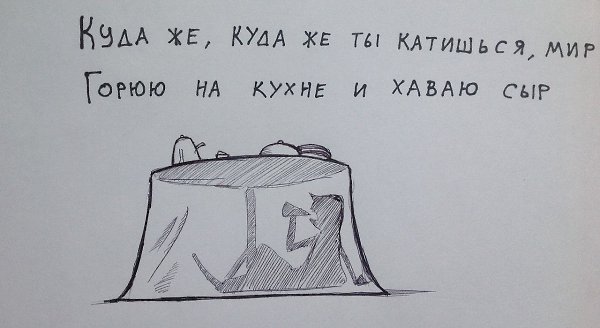 Куда же, куда же ты катишься, мир
Горюю на кухне и хаваю сыр